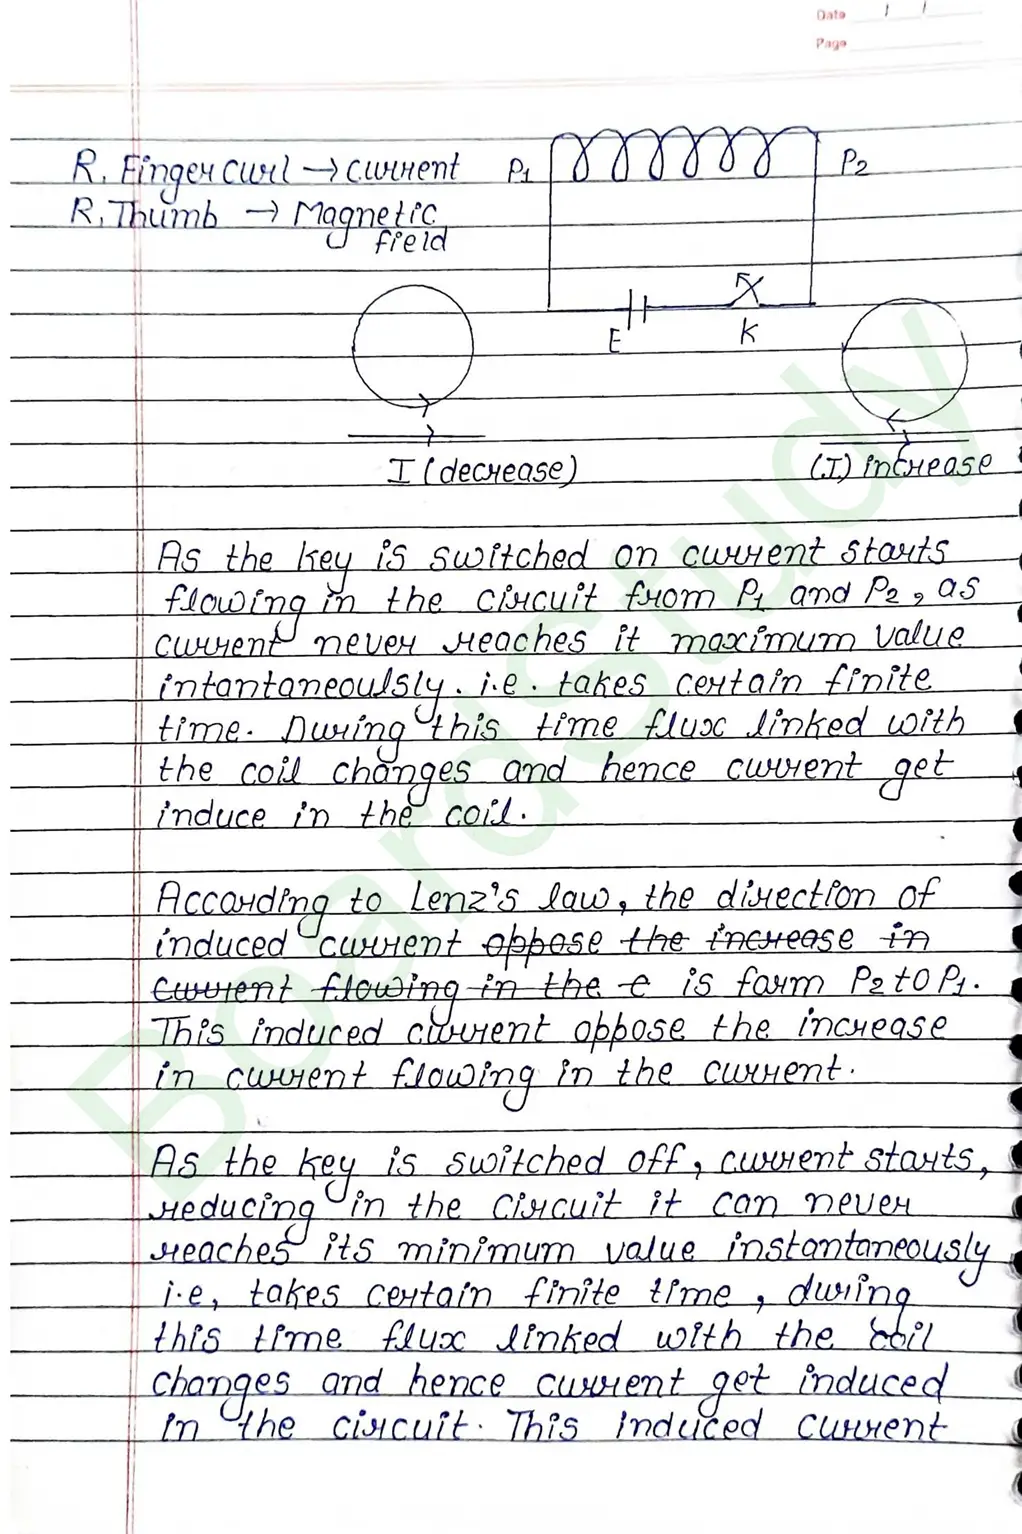 Date / /
Page
R. Finger curl → current
R. Thumb → Magnetic
field
P1
P2
E
K
I (decrease)
(I) increase
As the key is switched on current starts
flowing in the circuit from P1 and P2, as
current never reaches it maximum value
intantaneoulsly. i.e. takes certain finite
time. During this time flux linked with
the coil changes and hence current get
induce in the coil.
According to Lenz's law, the direction of
induced current oppose the increase in
current flowing in the c is farm P2 to P1.
This induced current oppose the increase
in current flowing in the current.
As the key is switched off, current starts,
reducing in the circuit it can never
reaches its minimum value instantaneously
i.e, takes certain finite time, during
this time flux linked with the coil
changes and hence current get induced
in the circuit. This induced current
BoardStudy